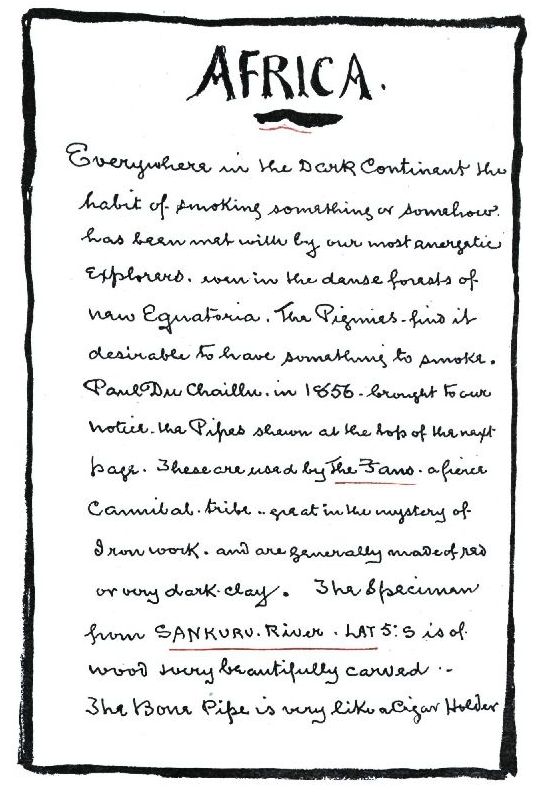 AFRICA.
Everywhere in the Dark Continent the
habit of smoking something or somehow.
has been met with by our most energetic
Explorers. even in the dense forests of
new Equatoria. The Pigmies - find it
desirable to have something to smoke.
Paul Du Chaillu. in 1856 - brought to our
notice - the Pipes shewn at the top of the next
page. These are used by The Fans. a fierce
Cannibal. tribe .. great in the mystery of
Iron work. and are generally made of red
or very dark. clay. The Specimen
from SANKURU. River. LAT 5°. S is of.
wood very beautifully carved. -
The Bone Pipe is very like a Cigar Holder